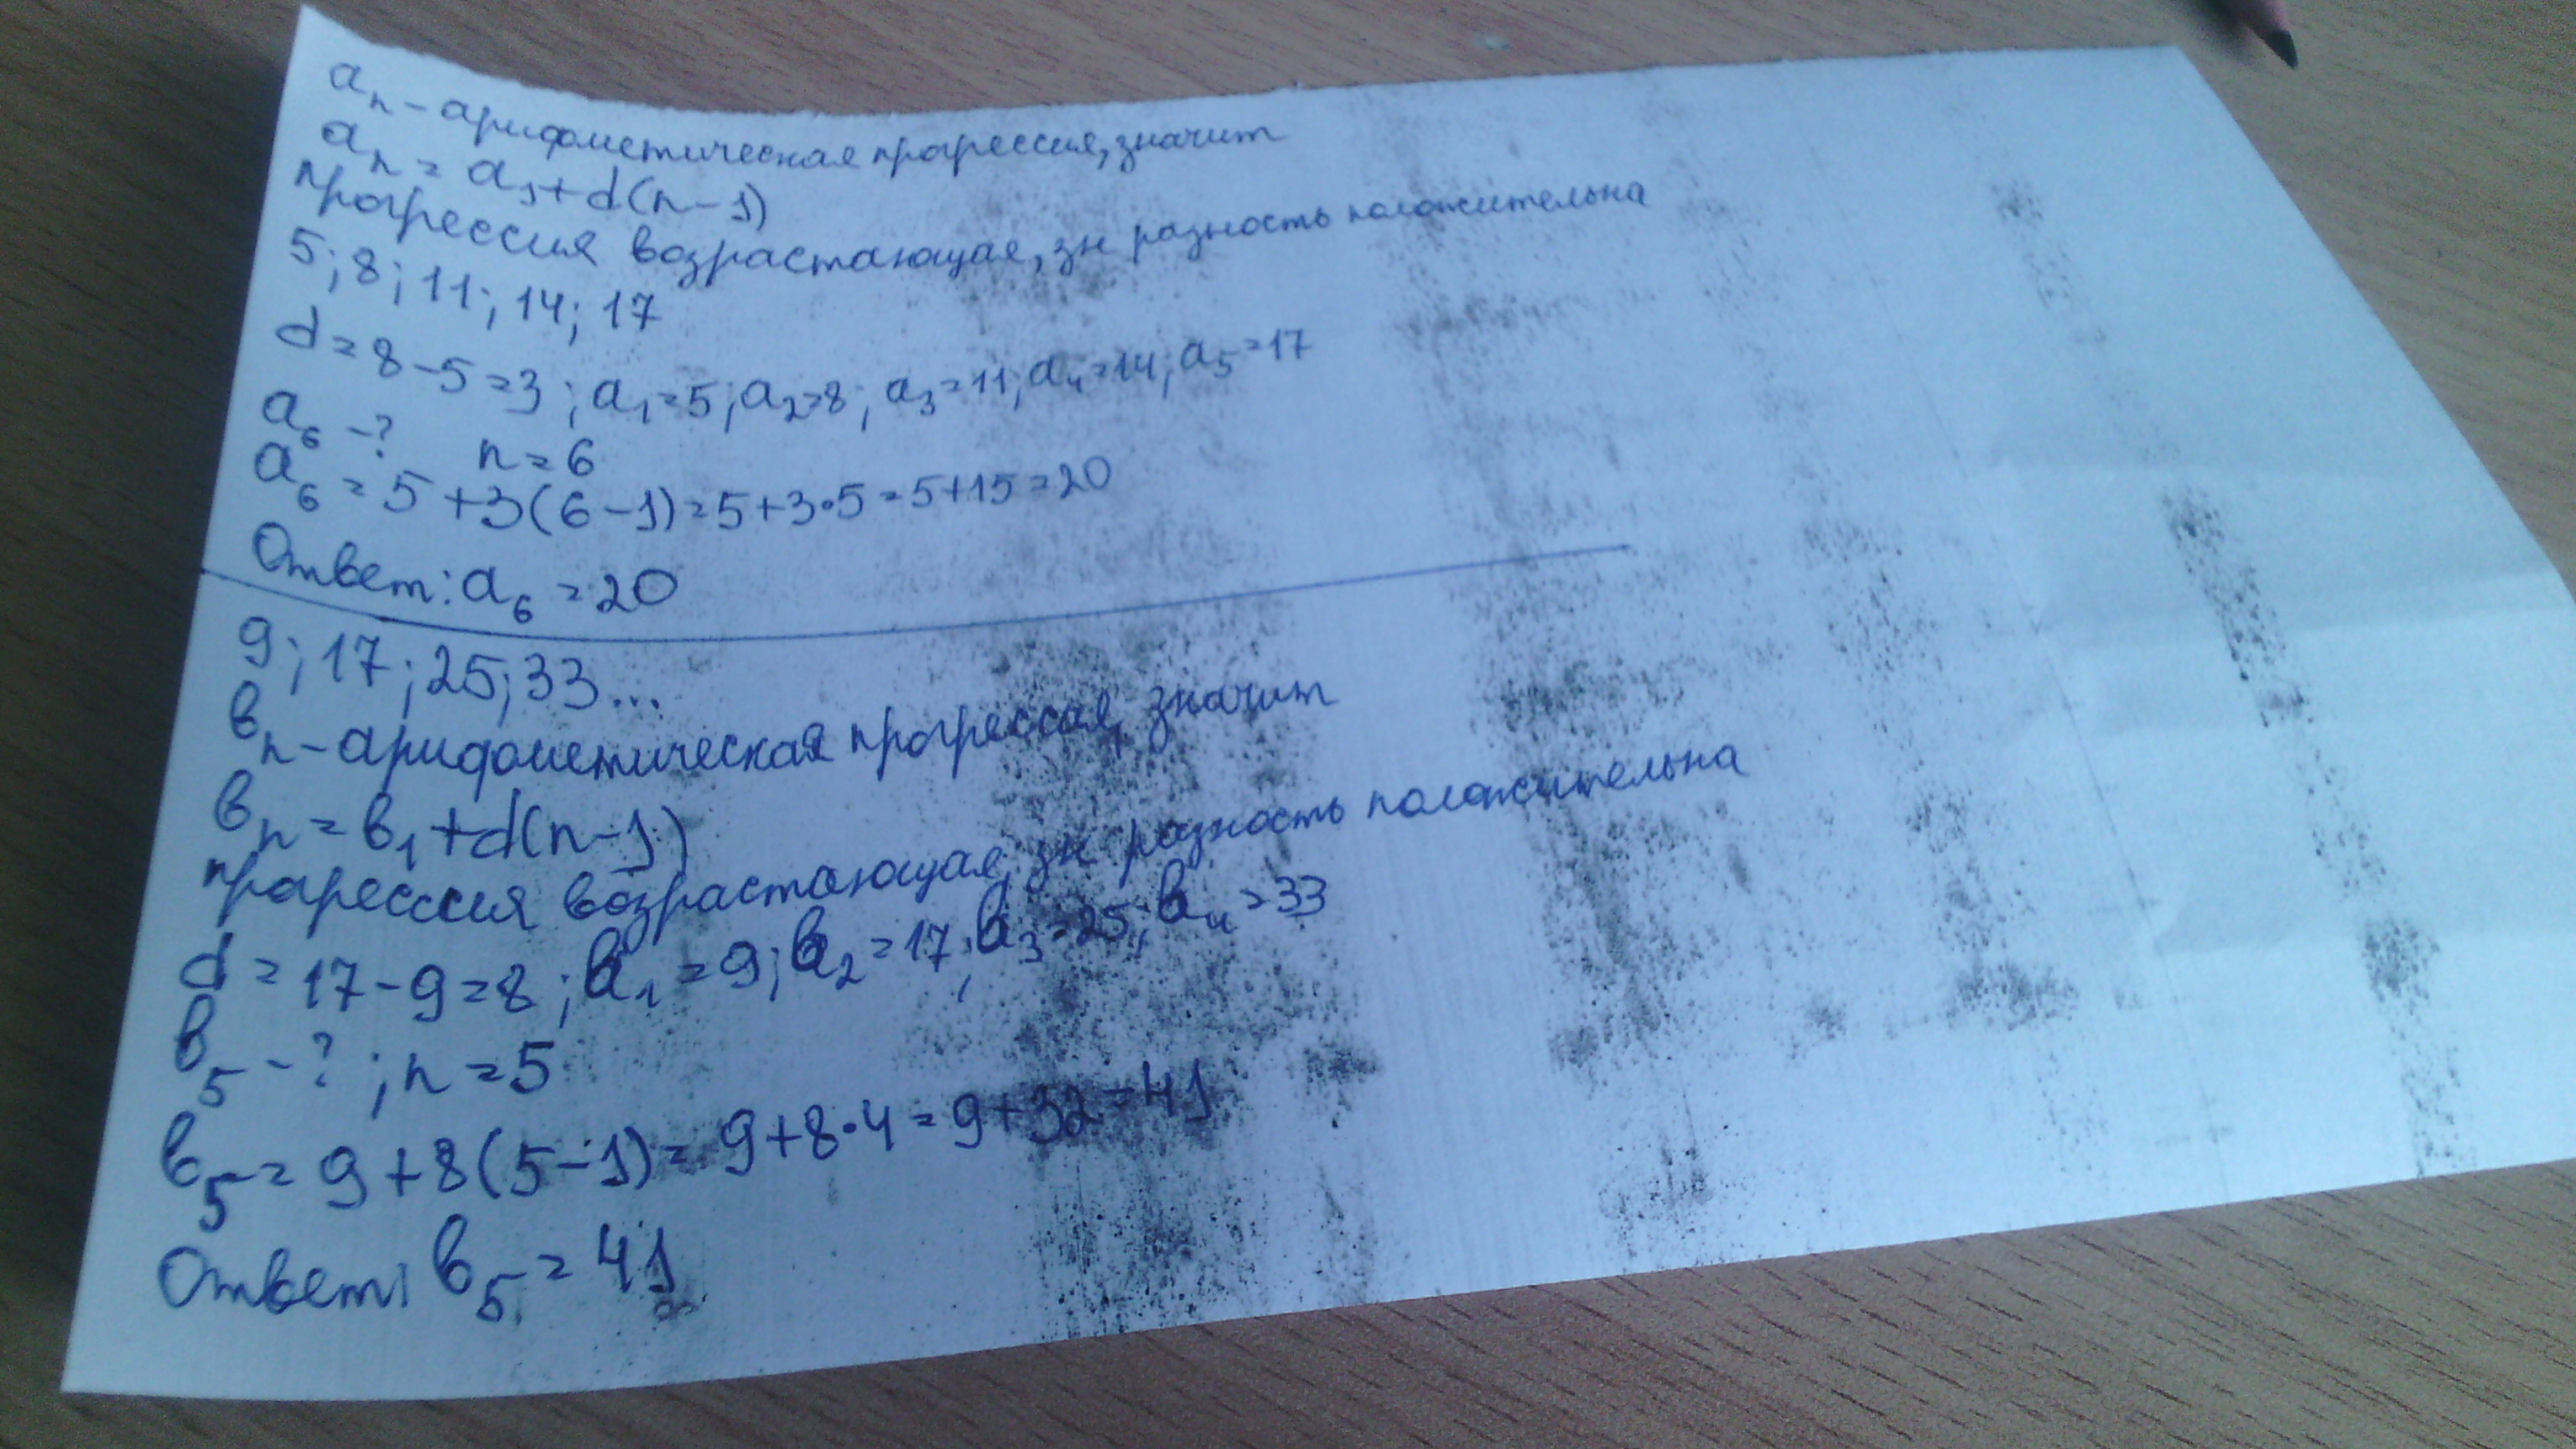 aₙ - арифметическая прогрессия, значит
aₙ = a₁ + d(n-1)
прогрессия возрастающая, зн разность положительна
5; 8; 11; 14; 17
d = 8 - 5 = 3; a₁ = 5; a₂ = 8; a₃ = 11; a₄ = 14; a₅ = 17
a₆ - ? n = 6
a₆ = 5 + 3(6 - 1) = 5 + 3 • 5 = 5 + 15 = 20
Ответ: a₆ = 20
9; 17; 25; 33...
вₙ - арифметическая прогрессия, значит
вₙ = в₁ + d(n-1)
прогрессия возрастающая, зн разность положительна
d = 17 - 9 = 8; в₁ = 9; в₂ = 17; в₃ = 25; в₄ = 33
в₅ - ?; n = 5
в₅ = 9 + 8(5 - 1) = 9 + 8 • 4 = 9 + 32 = 41
Ответ: в₅ = 41